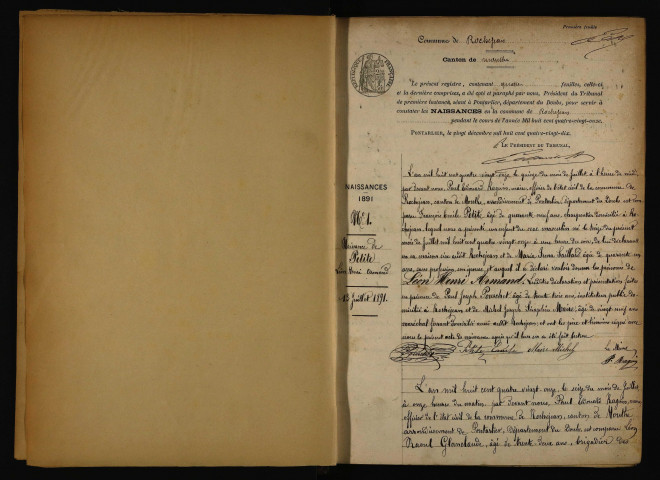 Première feuille
Commune de Rochejean
Canton de Mouthe
RÉPUBLIQUE FRANÇAISE
Le présent registre, contenant quatre feuilles, celle-ci
et la dernière comprises, a été coté et paraphé par nous, Président du Tribunal
de première instance, séant à Pontarlier, département du Doubs, pour servir à
constater les NAISSANCES en la commune de Rochejean
pendant le cours de l'année Mil huit cent quatre-vingt-onze.
PONTARLIER, le vingt décembre mil huit cent quatre-vingt-dix.
LE PRÉSIDENT DU TRIBUNAL,
NAISSANCES
1891
N° 1.
Naissance de
Petite
Léon Henri Armand
15 Juillet 1891.
L'an mil huit cent quatre vingt onze le quinze du mois de juillet à l'heure de midi
par devant nous, Paul Edouard Raguin, maire officier de l'état civil de la commune de
Rochejean, canton de Mouthe, arrondissement de Pontarlier département du Doubs est com-
paru François Emile Petite âgé de quarante neuf ans, charpentier domicilié à Ro-
chejean, lequel nous a présenté un enfant du sexe masculin né le du présent
mois de juillet mil huit cent quatre vingt onze à une heure du soir, de lui déclarant
en sa maison sise audit Rochejean et de Marie Anna Saillard âgée de quarante un
ans, sans profession son épouse, et auquel il a déclaré vouloir donner les prénoms de
Léon Henri Armand. Lesdites déclaration et présentation faites
en présence de Paul Joseph âgé de trente trois ans, instituteur public do-
micilié à Rochejean et de Michel Joseph Séraphin Maire, âgé de vingt neuf ans
maréchal ferrant domicilié aussi audit Rochejean, et ont les père et témoins signé avec
nous le présent acte de naissance après qu'il leur en a été fait lecture.
Petite Emile Maire Michel Le Maire
P. Raguin
L'an mil huit cent quatre vingt onze, le seize du mois de juillet
à onze heures du matin, par devant nous, Paul Edouard Raguin, maire
officier de l'état civil de la commune de Rochejean, canton de Mouthe
arrondissement de Pontarlier, département du Doubs, est comparu Léon
Raoul âgé de trente deux ans, brigadier des